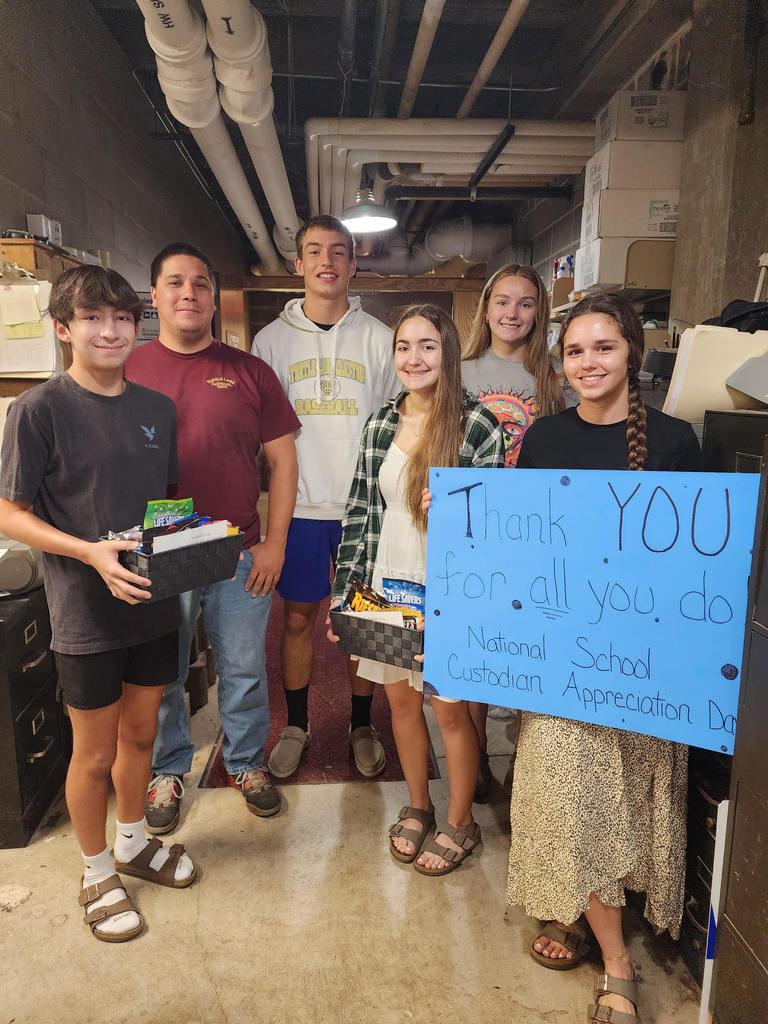 HW SU
TURTLE LAKE
LIFE SAVERS
LIFE SAVERS
BASEBALL
Thank YOU
for all you do!
National School
Custodian Appreciation Da